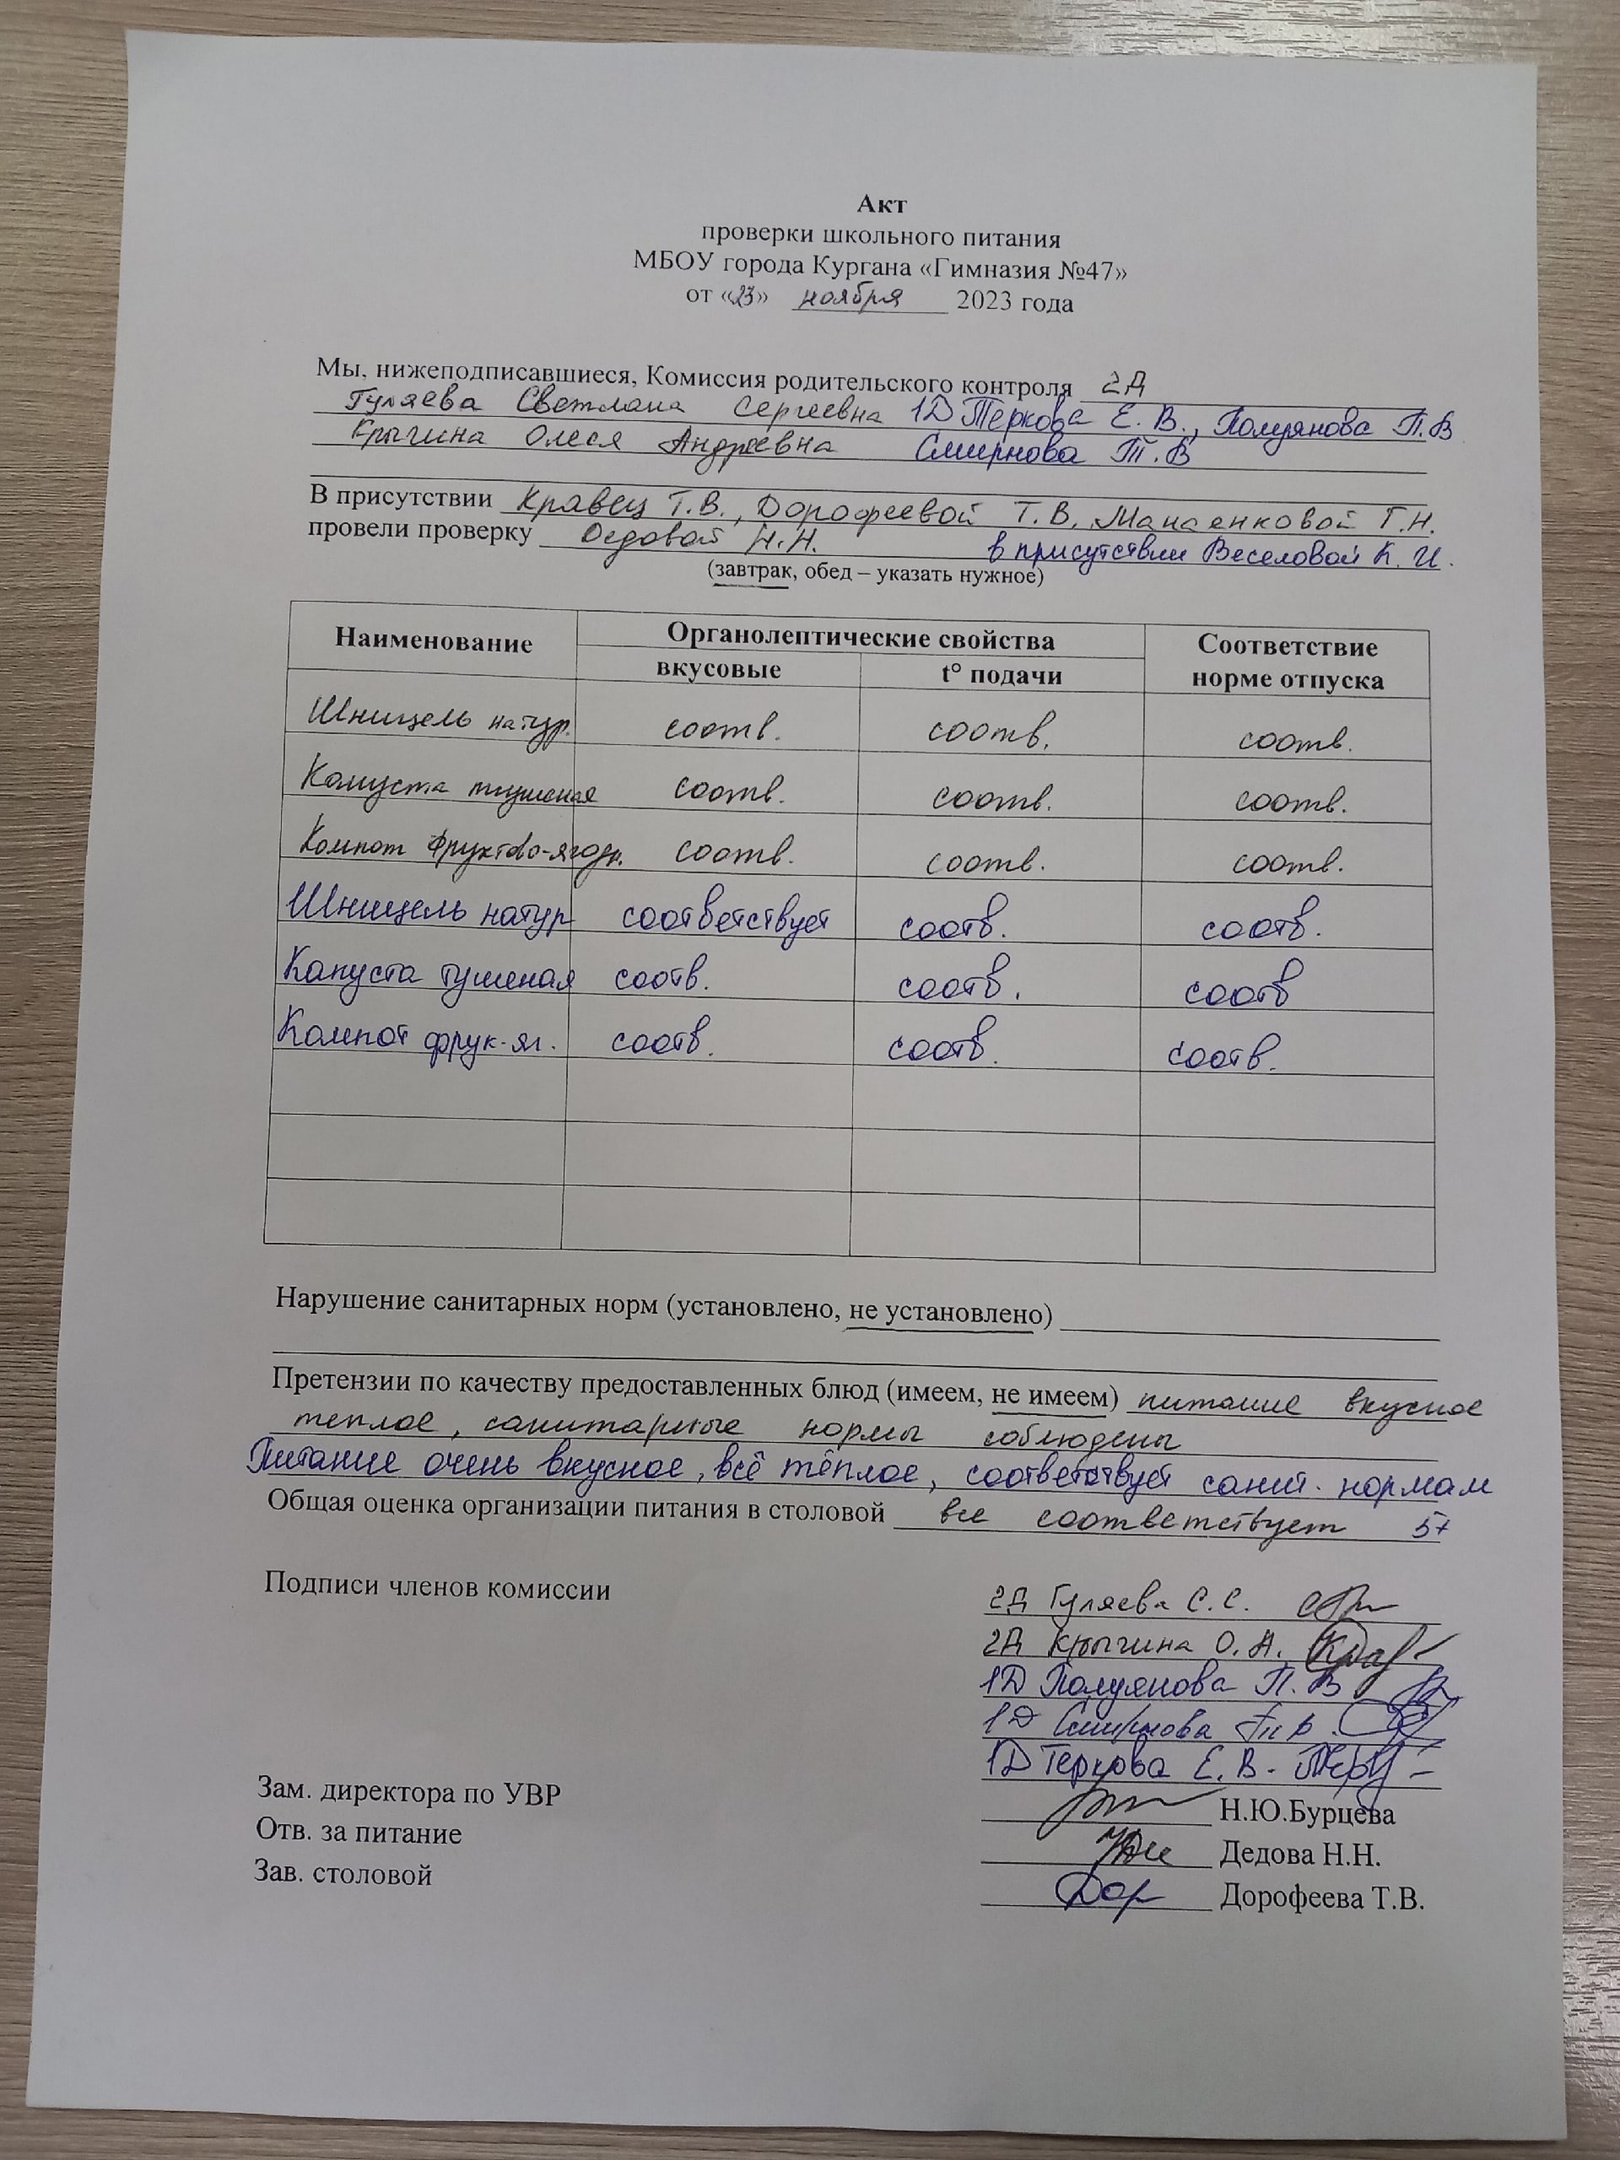 Акт
проверки школьного питания
МБОУ города Кургана «Гимназия №47»
от «23» ноября 2023 года
Мы, нижеподписавшиеся, Комиссия родительского контроля 2Д
Гуляева Светлана Сергеевна 1Д Теркова Е. В., Полуянова П.В
Крыгина Олеся Андреевна Смирнова Т.В
В присутствии Кравец Т.В., Дорофеевой Т.В. Манаенковой Г.Н.
провели проверку Дедовой Н.Н. в присутствии Веселовой К. И.
(завтрак, обед – указать нужное)
Наименование Органолептические свойства Соответствие норме отпуска
вкусовые t° подачи
Шницель натур. соотв. соотв. соотв.
Капуста тушеная соотв. соотв. соотв.
Компот фруктово-ягодн. соотв. соотв. соотв.
Шницель натур соответствует соотв. соотв.
Капуста тушеная соотв. соотв. соотв
Компот фрук-яг. соотв. соотв. соотв.
Нарушение санитарных норм (установлено, не установлено)
Претензии по качеству предоставленных блюд (имеем, не имеем) питание вкусное
теплое, санитарные нормы соблюдены
Питание очень вкусное, всё тёплое, соответствует санит. нормам
Общая оценка организации питания в столовой все соответствует 5+
Подписи членов комиссии
2Д Гуляева С.С.
2Д Крыгина О.А.
1Д Полуянова П.В
1Д Смирнова
1Д Теркова Е.В.
Зам. директора по УВР Н.Ю.Бурцева
Отв. за питание Дедова Н.Н.
Зав. столовой Дорофеева Т.В.